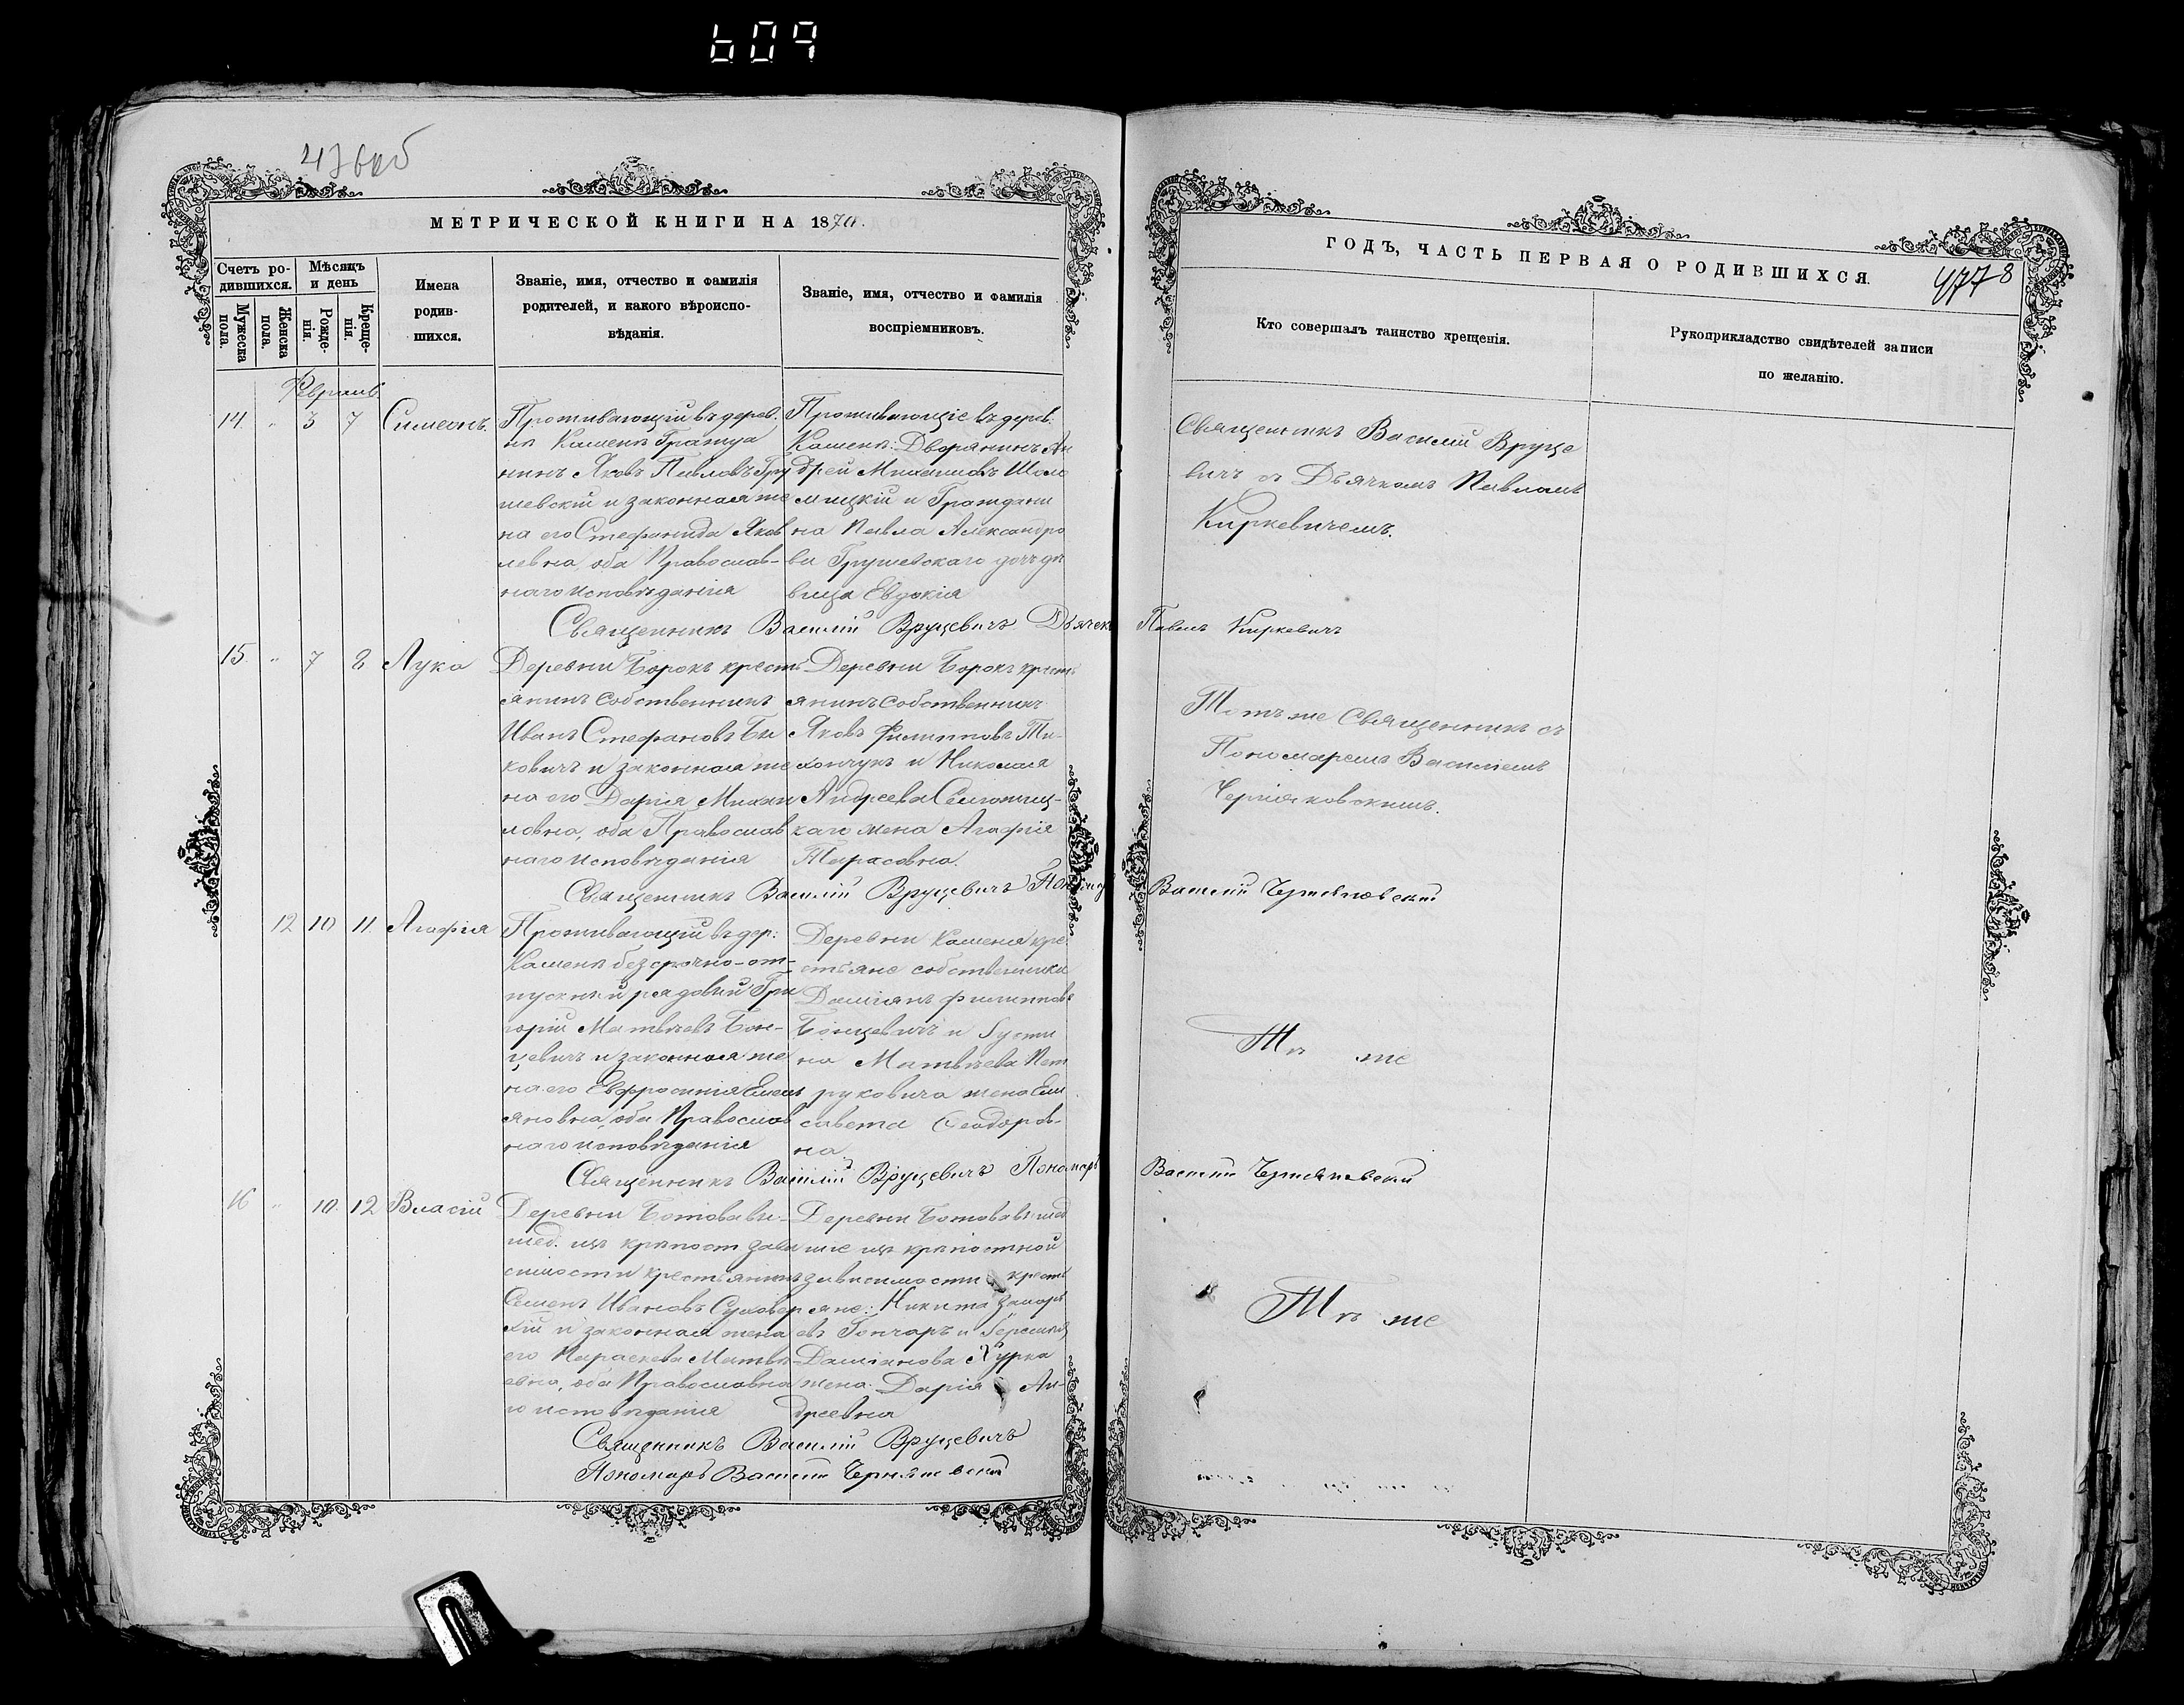 609
МЕТРИЧЕСКОЙ КНИГИ НА 1870.
Счетъ ро-
дившихся.
Мужеска
пола.
Женска
пола.
Мѣсяцъ
и день
Рожде-
нія.
Креще-
нія.
Имена
родив-
шихся.
Званіе, имя, отчество и фамилія
родителей, и какого вѣроиспо-
вѣданія.
Званіе, имя, отчество и фамилія
воспріемниковъ.
Февраль
14. " 3 7 Симеонъ.
Проживающій въ дерев.
нѣ Каменѣ Гражда
нинъ Яковъ Павловъ Гру
шевскій и законная же
на его Стефанида Яков
левна, оба Православ-
наго исповѣданія
Проживающіе въ дерев:
Каменѣ: Дворянинъ Ан
дрей Михаиловъ Шоло
мицкій и Граждани
на Павла Александро
ва Грушевскаго дочь дѣ
вица Евдокія
Священникъ Василій Вруцевичъ Дьячек
15. " 7 8 Лука
Деревни Борокъ кресть
янинъ собственникъ
Иванъ Стефановъ Би
ковичъ и законная же
на его Дарія Михаи
ловна, оба Православ
наго исповѣданія
Деревни Борокъ кресть
янинъ собственникъ
Яковъ Филипповъ Ти-
хончукъ и Николая
Андреева
каго жена Агафія
Тарасовна.
Священникъ Василій Вруцевичъ
12 10 11 Агафія
Проживающій въ дер:
Каменѣ безсрочно-от-
пускный рядовый Гри
горій Матвѣевъ Бон-
цевичъ и законная же
на его Евфросинія Емель
яновна, оба Православ
наго исповѣданія
Деревни Каменя кре
стьяне собственники
Даміянъ Филипповъ
Бонцевичъ и Густи
на Матвѣева Пет
руковича жена Ели
савета Ѳеодоров-
на.
Священникъ Василій Вруцевичъ Пономарь
16 " 10. 12 Власій
Деревни Ботова вы-
шед. изъ крѣпост зави
симости крестьянинъ
Семенъ Ивановъ Суховер
хій и законная жена
его Параскева Матвѣ-
евна, оба Православна
го исповѣданія
Деревни Ботова вышед
шіе изъ крѣпостной
зависимости кресть
яне: Никита
евъ Гончаръ и
Даміанова Курка
жена Дарія Ан-
дреевна
Священникъ Василій Вруцевичъ
Пономарь Василій Черняковскій
ГОДЪ, ЧАСТЬ ПЕРВАЯ О РОДИВШИХСЯ.
477 8
Кто совершалъ таинство крещенія.
Рукоприкладство свидѣтелей записи
по желанію.
Священникъ Василій Вруце
вичъ съ Дьячкомъ Павломъ
Киркевичемъ.
Павелъ Киркевичъ
Тотъ же Священникъ съ
Пономаремъ Василіемъ
Черняковскимъ.
Василій Черняковскій
Тѣ же
Василій Черняковскій
Тѣ же